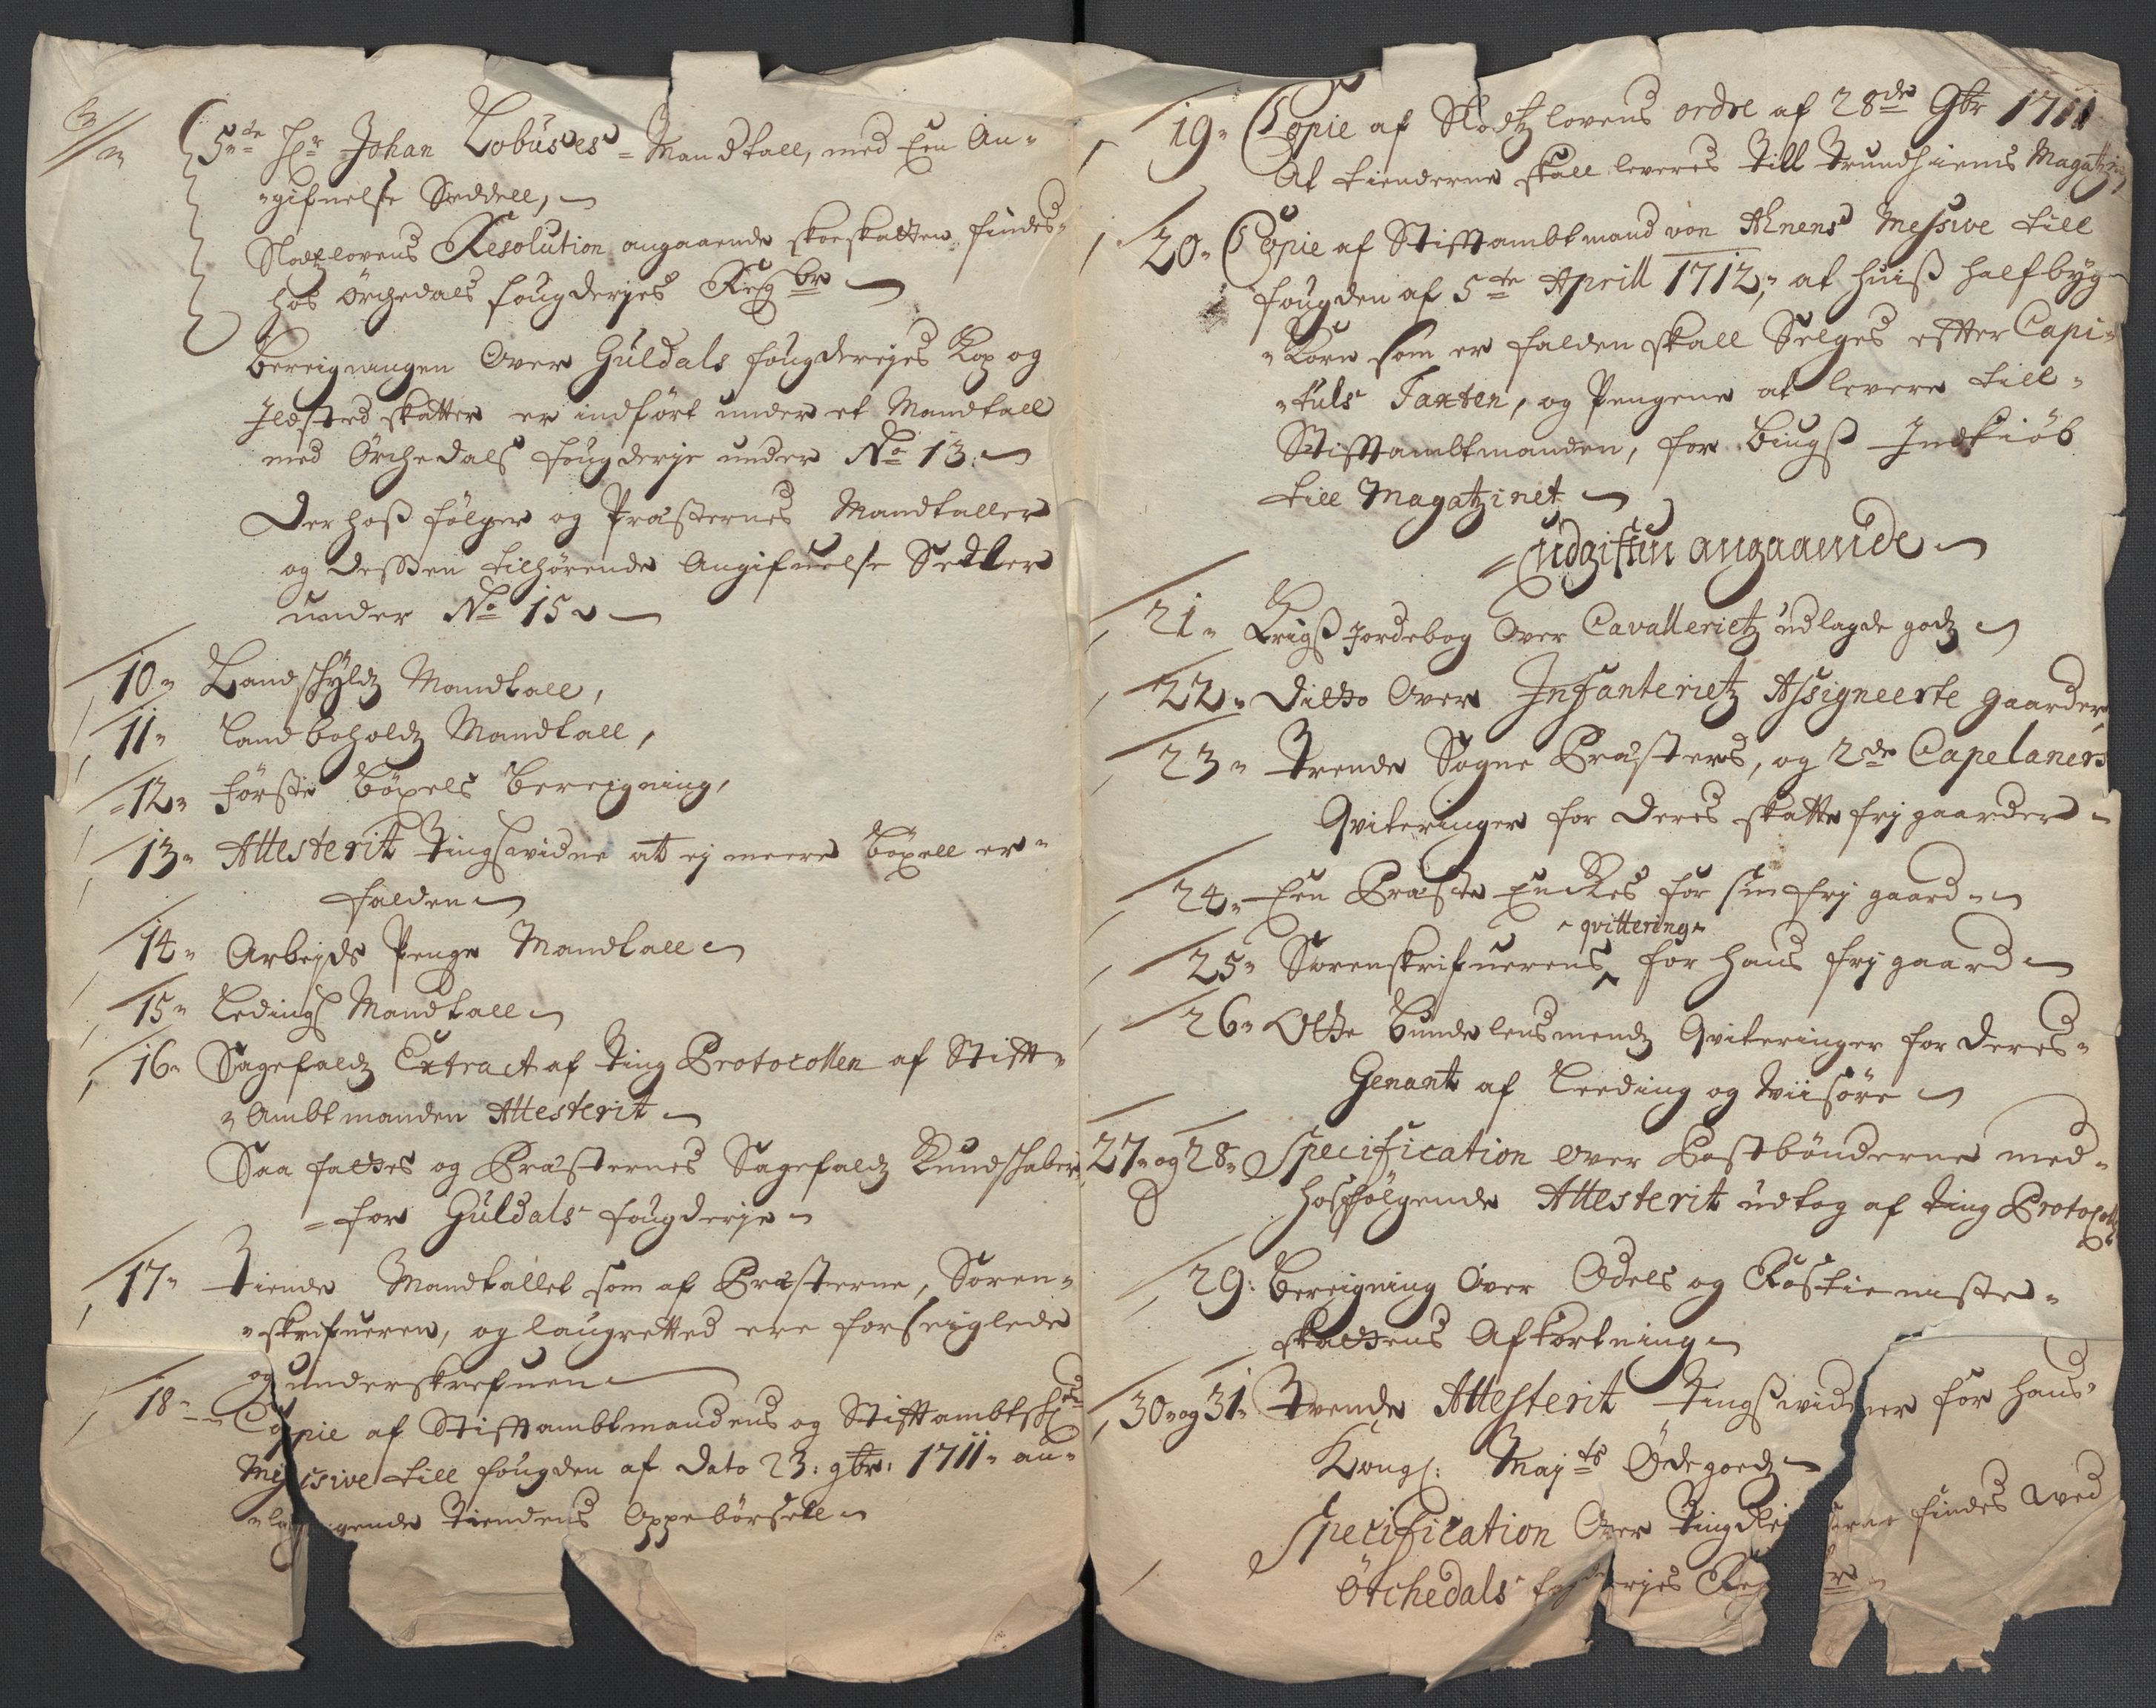 5te Hr Johan Lobuses Mandtall, med Een An-
gifuelse Seddell,
Slodtzlovens Resolution angaaende skoeskatten, findes
hos Örchedals fougderjes Regbr
Bereigningen Over Guldals fougderjes Kop og
Jldsted skatter er indført under et Mandtall
med Örchedals fougderje under No 13.
Derhoß følger og Præsternes Mandtaller
og dessen tilhørende Angifuelse Sedler
under No 15
10. Landschyldz Mandtall,
11. Landboholdz Mandtall,
12. Første böxels Bereigning,
13. Attesterit Tingswidne at ej meere böxell er
falden
14. Arbejds Penge Mandtall
15. Ledings Mandtall
16. Sagefaldz Extract af Ting Protocollen af Stift-
Ambtmanden Attesterit
Saa fattes og Præsternes Sagefaldz Kundschaber
for Guldals fougderje
17. Tiende Mandtallet som af Præsterne, Soren-
skrifueren, og laugretted ere forseiglede
og underskrefuen
18. Copie af Stiftambtmandens og Stiftambtsk
Missive till fougden af dato 23: 9br: 1711 an-
gende Tiendens Oppebørsell
19. Copie af Slodtzlovens ordre af 28de 9br 1711
At tienderne skall leveres till Trundhiems Magatzin
20. Copie af Stiftambtmand von Ahnens Messive till
fougden af 5te Aprill 1712, at huiß halfbyg
Korn som er falden skall Selges effter Capi-
tuls Taxten, og Pengene at levere till
Stiftambtmanden, for biugß Jndkiöb
till Magatzinet
Udgifften angaaende
21. Krigß Jordebog Over Cavalleriets udlagde godz
22. Ditto Over Infanterietz Assigneerte gaarder
23. Trende Sogne Præsters, og 2de Capelaners
Qviteringer for deres skatte frj gaarder
24. Een Præste Enckes for sin frj gaard
qvittering
25. Sorenskrifuerens for hans frj gaard
26. Otte bunde lensmends Qviteringer for deres
Genant af Leeding og Wiisöre
27. og 28. Specification over Postbønderne med
hosfølgende Attesterit udtog af ting Protocoll
29. Bereigning Over Odels og Rostieniste
skattens Afkortning
30. og 31. Tvende Attesterit tingßwidner for hans
Kongl: Mayts Ödegodz
Specification Over Ting findes wed
Örchedals